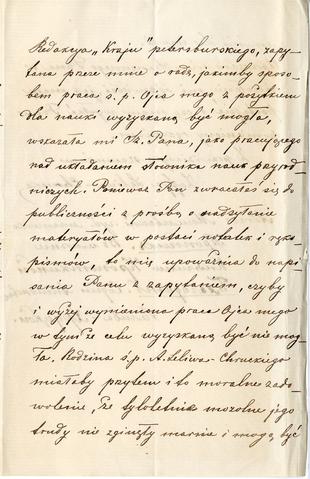 Redakcya „Kraju" petersburskiego, zapy-
tana przeze mnie o radę, jakimby sposo-
bem praca ś. p. Ojca mego z pożytkiem
dla nauki wyzyskaną być mogła,
wskazała mi Sz. Pana, jako pracującego
nad układaniem słownika nauk przyrod-
niczych. Ponieważ Pan zwracałeś się do
publiczności z prośbą o nadsyłanie
materyałów w postaci notatek i ręko-
pismów, to mię upoważnia do napi-
sania Panu z zapytaniem, czyby
i wyżej wymieniona praca Ojca mego
w tymże celu wyzyskaną być nie mog-
ła. Rodzina ś. p. A. Leliwa-Chruckiego
miałaby przytem i to moralne zado-
wolenie, że tyloletnie mozolne jego
trudy nie zginęły marnie i mogą być